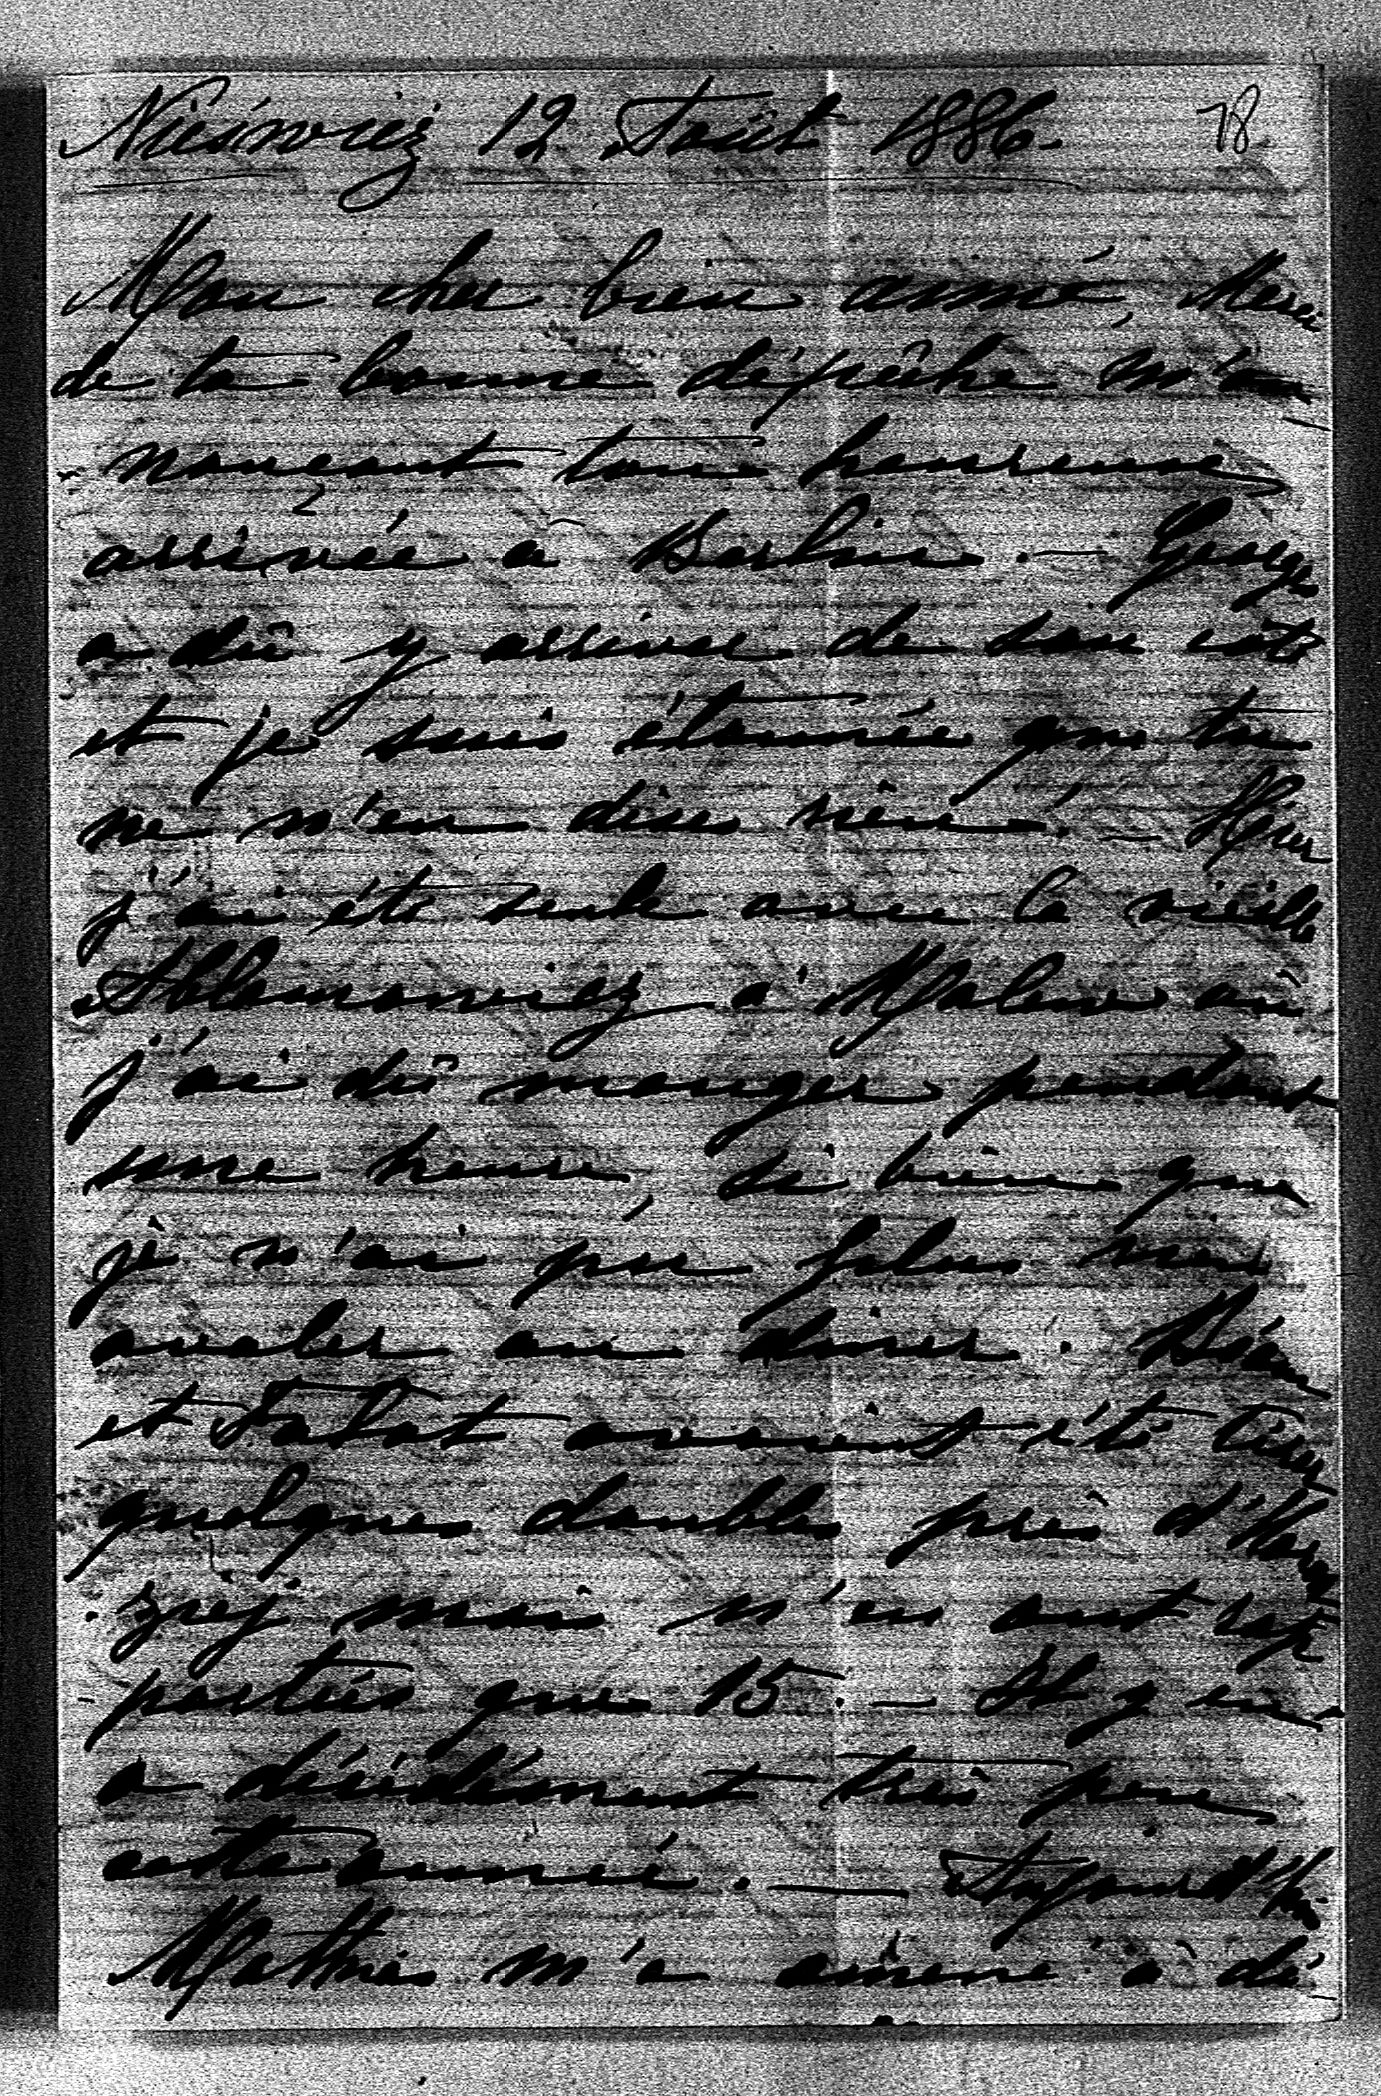 Nieświez 12 Août 1886. 78.
Mon cher bien aimé, Merci
de ta bonne dépêche m'an-
nonçant ton heureuse
arrivée à Berlin. — Georges
a dû y arriver de son côté
et je suis étonnée que tu
ne m'en dises rien! — Hier
j'ai été seule avec la vieille
à Malew où
j'ai dû manger pendant
une heure, si bien que
je n'ai pu plus rien
avaler au diner.
et avaient été tirer
quelques doubles près
mais n'en ont rap-
portées que 15. — Il y en
a décidément très peu
cette année. — Aujourd'hui
Mathias m'a amené à dé-